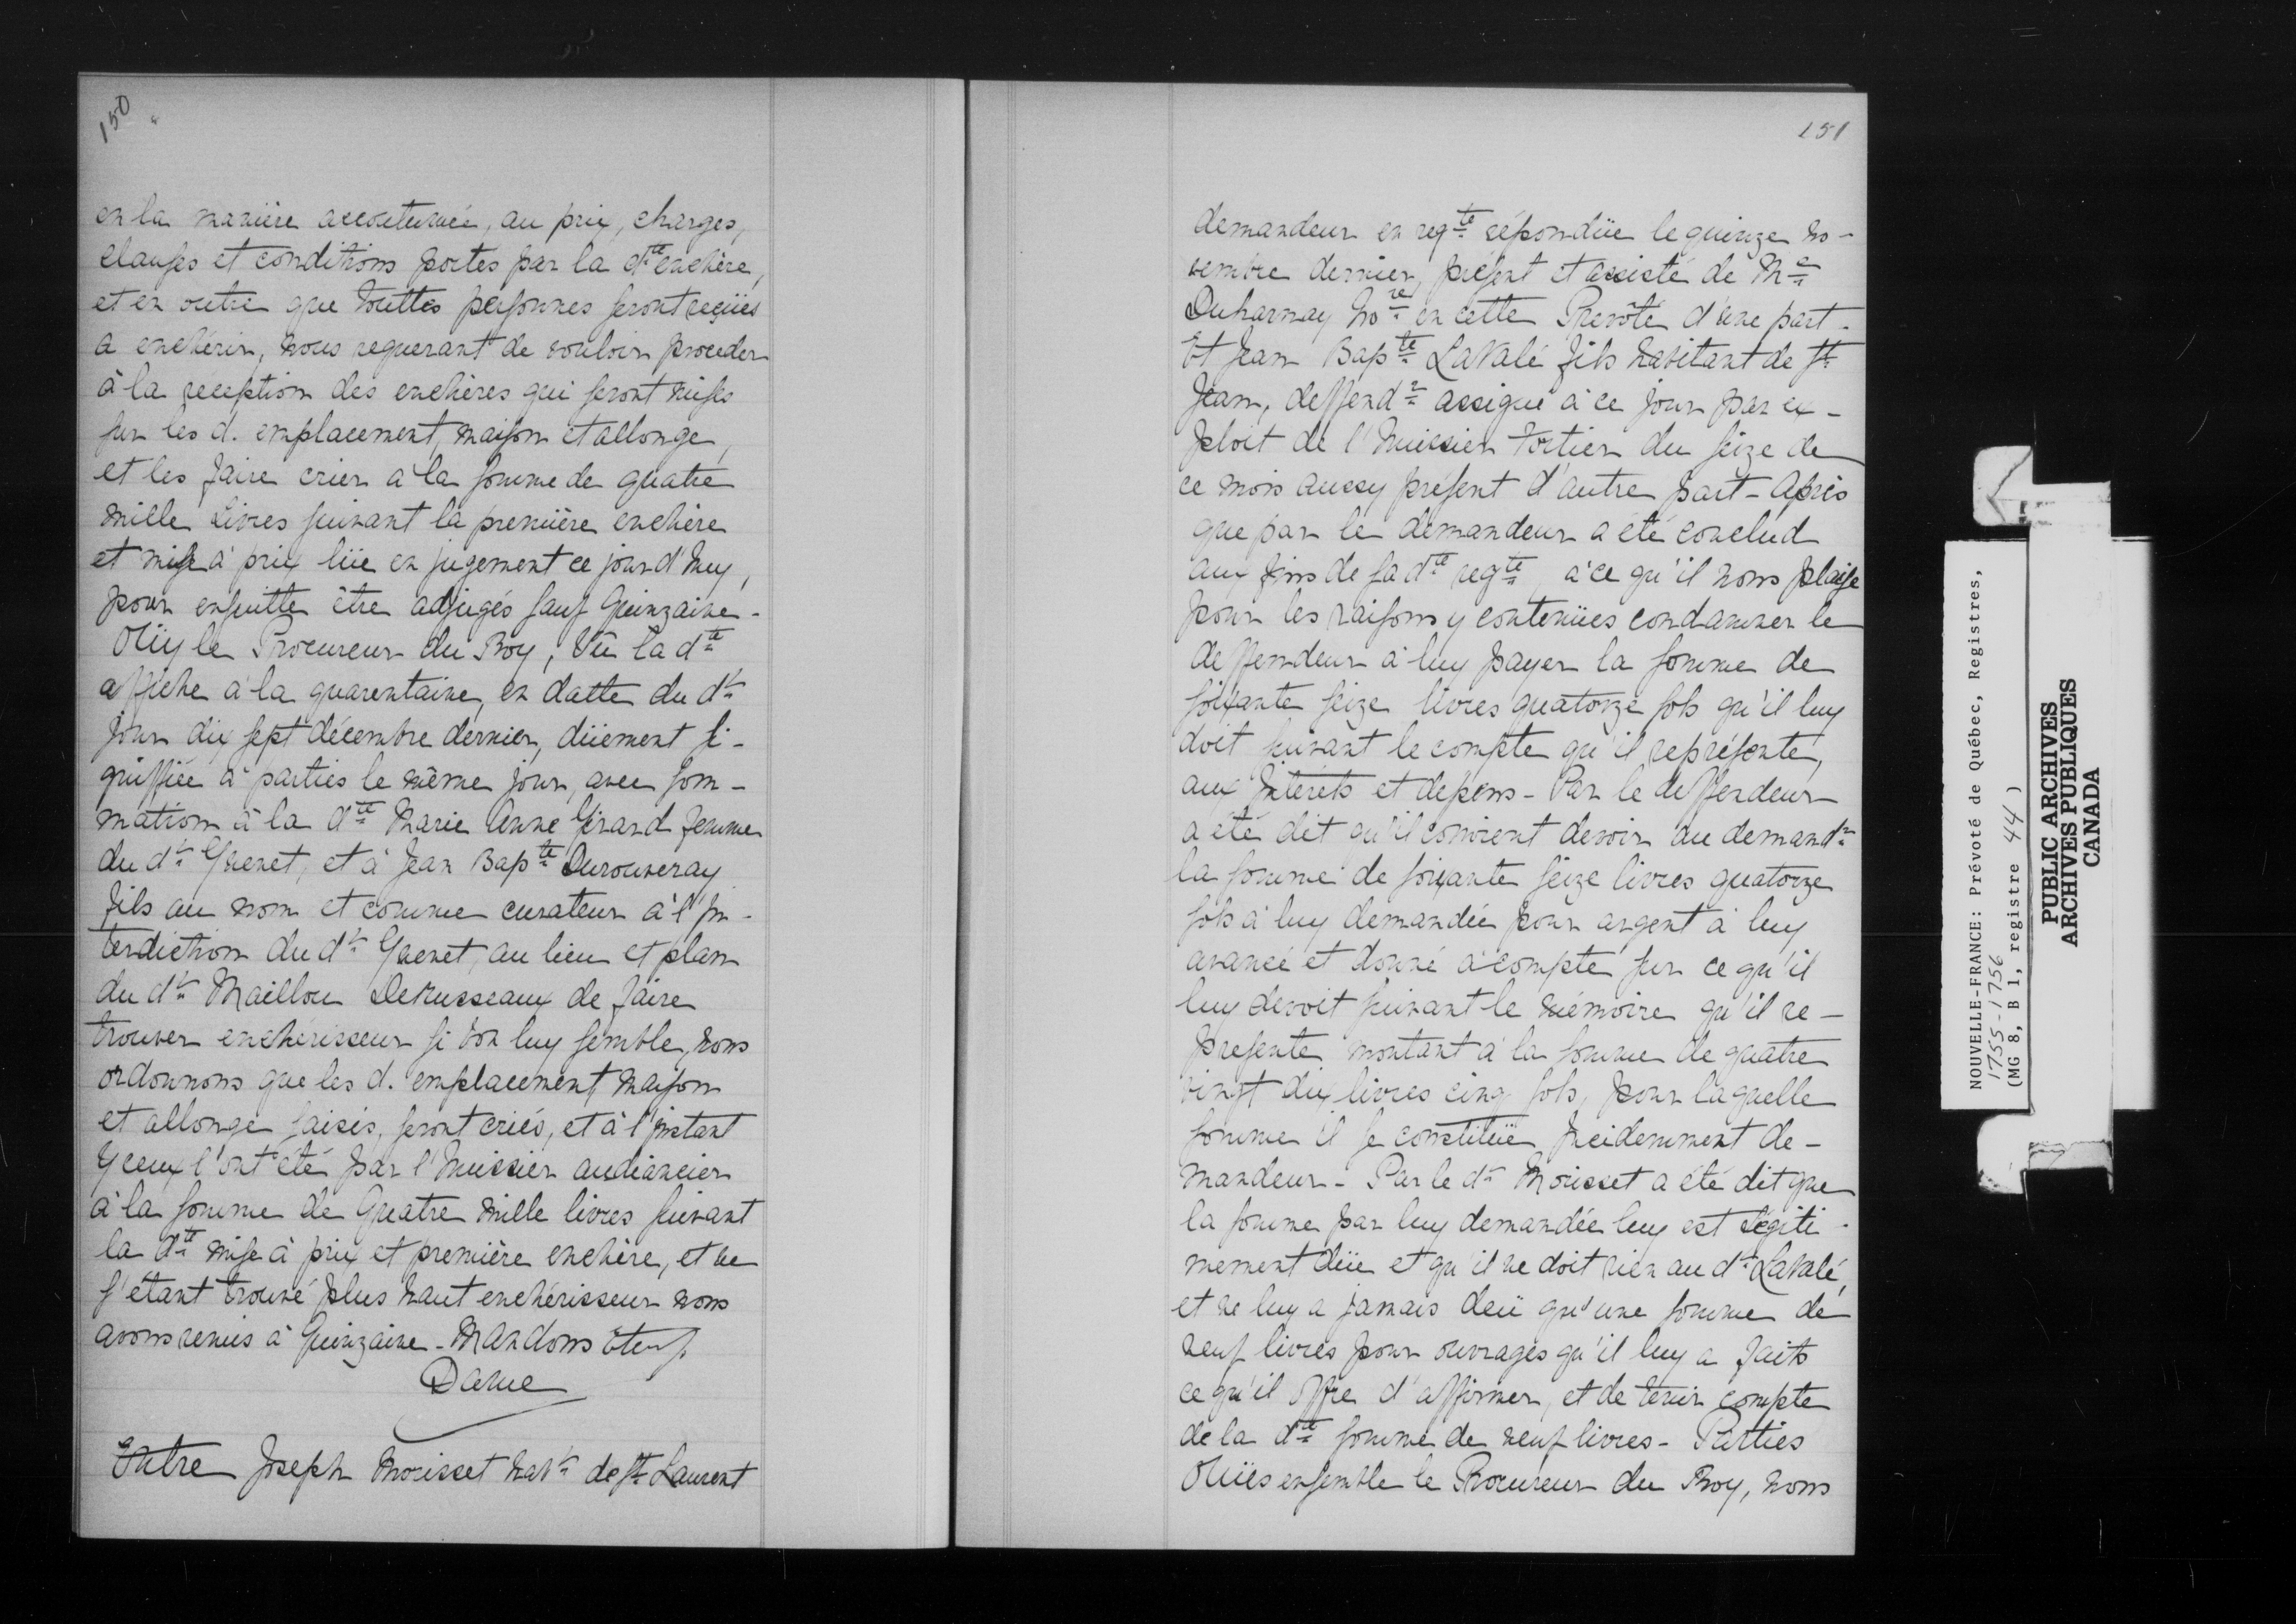 150
en la manière accoutumée, au prix, charges,
clauses et conditions portés par la dte enchère,
et en outre que touttes personnes seront reçües
a enchérir, nous requerant de vouloir proceder
à la reception des enchères qui seront mises
sur les d. emplacement, maison et allonge,
et les faire crier a la somme de quatre
mille Livres suivant la première enchère
et mise à prix lüe en jugement ce jourd'huy,
pour ensuitte être adjugés sauf Quinzaine -
Oüy le Procureur du Roy, Vû la dte
affiche à la quarentaine, en datte du dr
jour dix sept décembre dernier, düement si-
gniffiée à parties le même jour, avec som-
mation à la dte Marie Anne Girard femme
du dr Guenet, et à Jean Bapte Durouveray
fils au nom et comme curateur à l'in-
terdiction du dr Guenet, au lieu et place
du dr Maillou Desrusseaux de faire
trouver enchérisseur si bon luy semble, nous
ordonnons que les d. emplacement maison
et allonge saisis, seront criés, et à l'instant
Yceux l'ont été par l'huissier audiancier
à la somme de Quatre mille livres suivant
la dte mise à prix et première enchère, et ne
s'étant trouvé plus haut enchérisseur nous
avons remis à Quinzaine - Mandons
Daine
Entre Joseph Morisset habt de St Laurent
151
demandeur en reqte répondüe le quinze no-
vembre dernier, présent et assisté de Me
Duharnay Nore en cette Prevôté d'une part -
Et Jean Bapte LaValé fils habitant de St
Jean, deffendr assigné à ce jour par ex-
ploit de l'huissier Fortier du seize de
ce mois aussy présent d'autre part - Après
que par le demandeur a été conclud
aux fins de sa dte reqte, à ce qu'il nous plaise
pour les raisons y contenües condamner le
deffendeur à luy payer la somme de
soixante seize livres quatorze sols qu'il luy
doit suivant le compte qu'il représente,
aux Intérêts et depens - Par le deffendeur
a été dit qu'il convient devoir au demandr
la somme de soixante seize livres quatorze
sols à luy demandée pour argent à luy
avancé et donné à compte sur ce qu'il
luy devoit suivant le mémoire qu'il re-
presente montant à la somme de quatre
vingt dix livres cinq sols, pour laquelle
somme il se constitüe Incidemment de-
mandeur - Par le dr Morisset a été dit que
la somme par luy demandée luy est légiti-
mement düe et qu'il ne doit rien au dr LaValé,
et ne luy a jamais deü qu'une somme de
neuf livres pour ouvrages qu'il luy a faits
ce qu'il offre d'affirmer, et de tenir compte
de la dte somme de neuf livres - Parties
Oüies ensemble le Procureur du Roy, nous
NOUVELLE-FRANCE: Prévoté de Québec, Registres,
1755-1756
(MG 8, B 1, registre 44)
PUBLIC ARCHIVES
ARCHIVES PUBLIQUES
CANADA